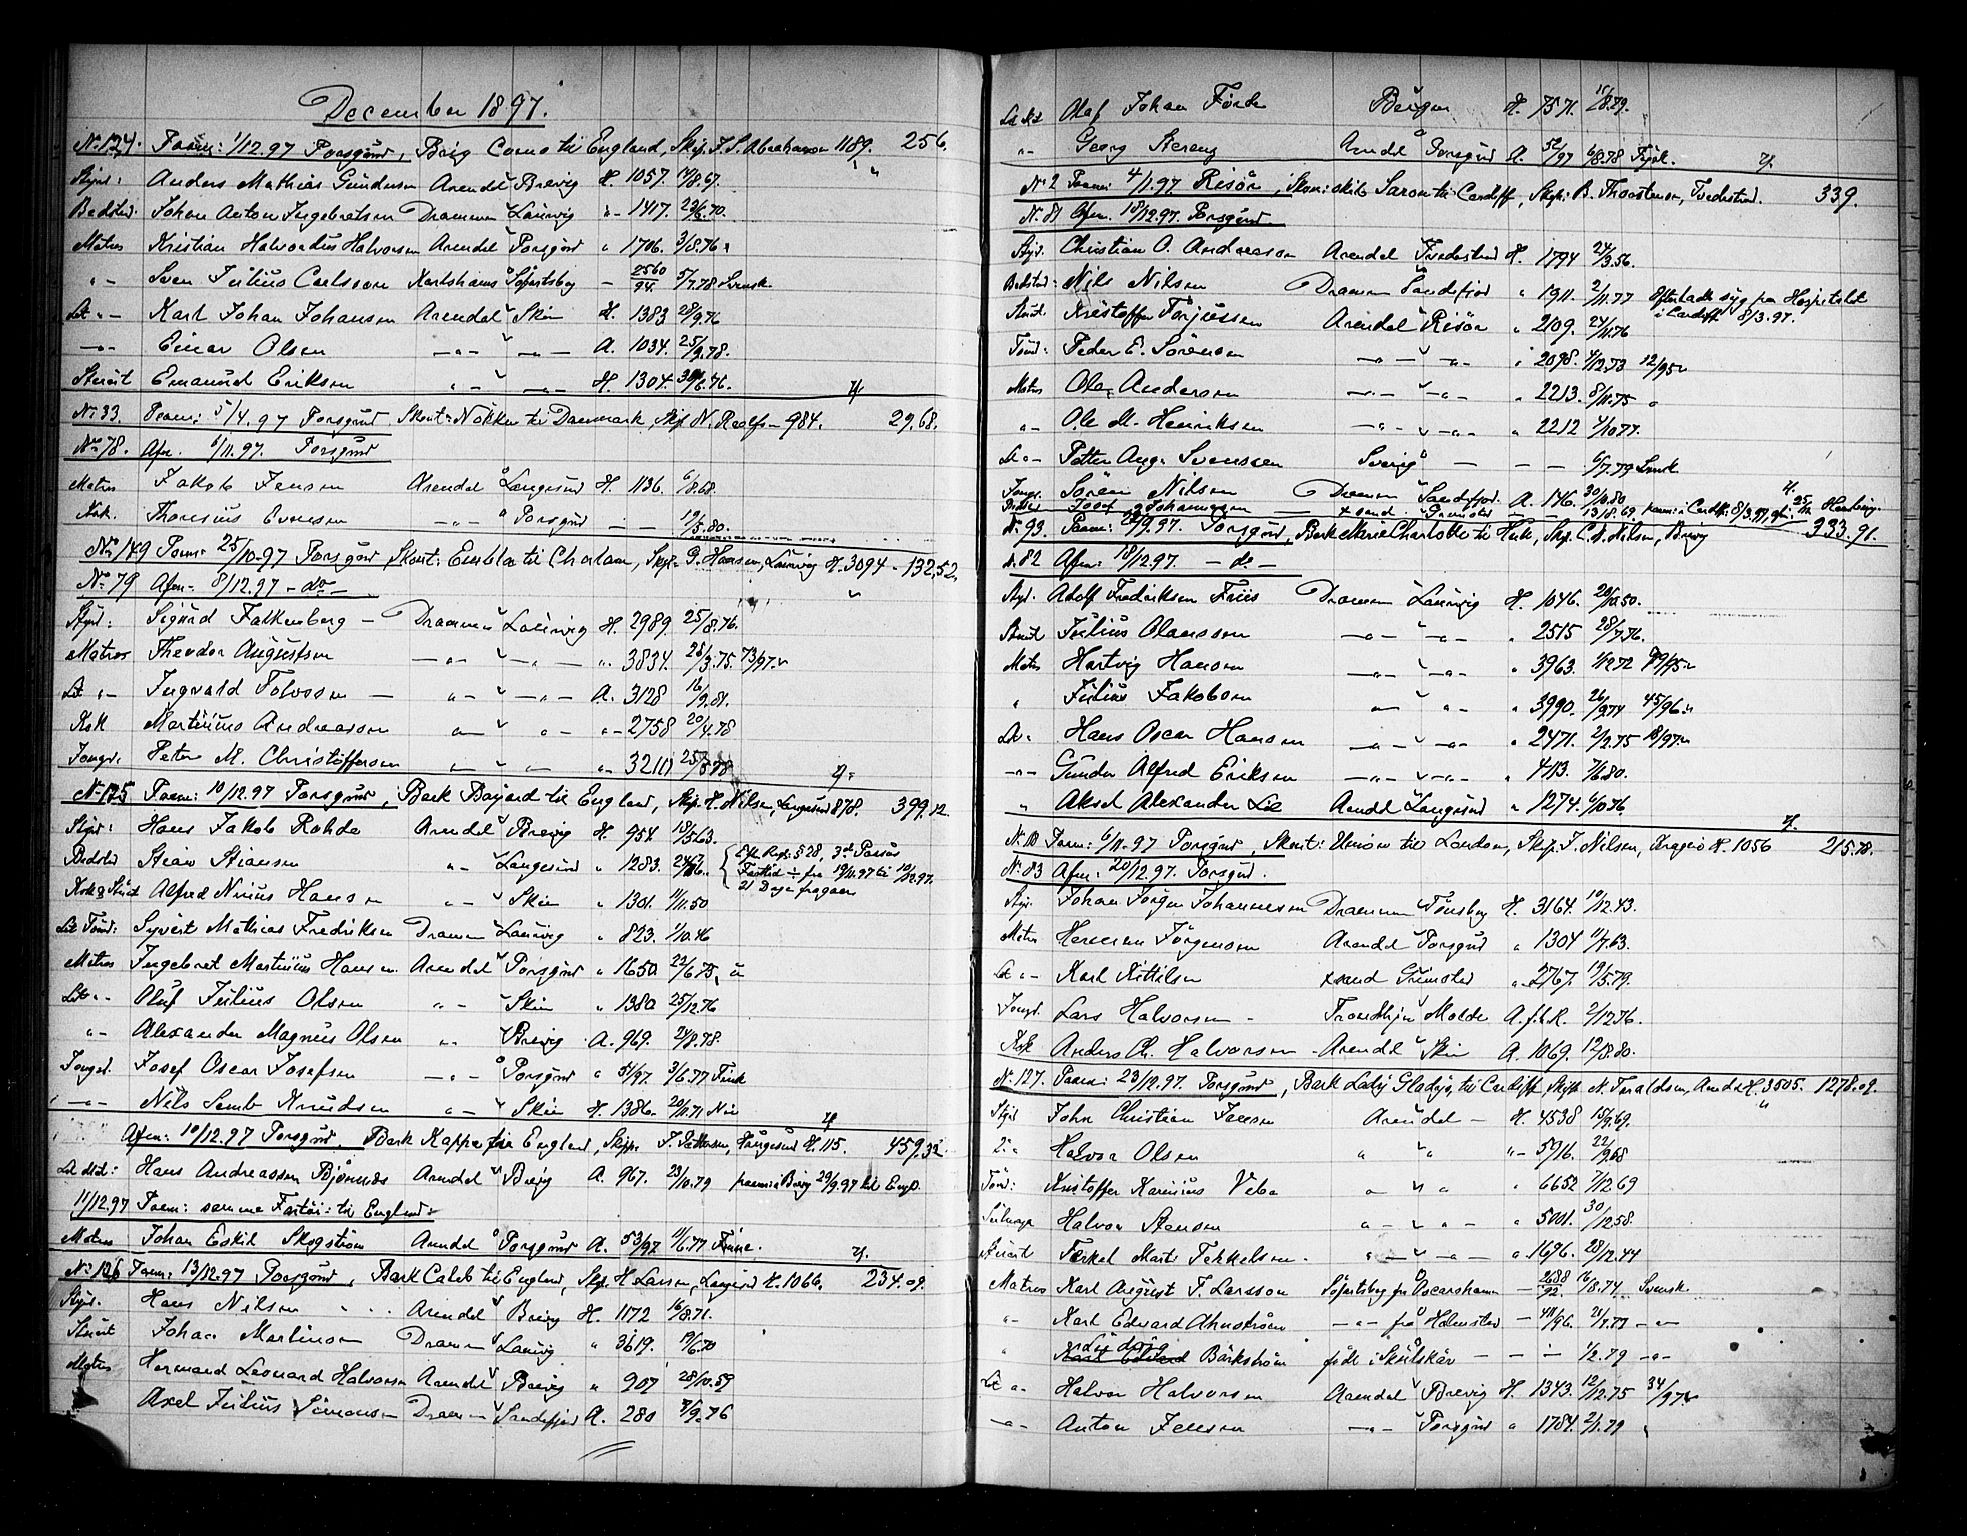 December 1897.
No 124. Paam: 1/12.97 Porsgund, Brig Como til England, Skip. F. S. Abrahamson 1189. 256.
Styrd: Anders Mathias Gundersen Arendal Brevig H. 1057. 14/8.67.
Bedstmd. Johan Anton Ingebretsen Drammen Laurvig " - 1417. 23/6.70.
Matros Kristian Halvordus Halvorsen Arendal Porsgund " 1706. 3/8.76
" - Sven Julius Carlsson Karlshamn Söfartsbog - 2560/94. 5/7.78 Svensk
Let " - Karl Johan Johansen Arendal Skien H. 1383 28/9.76
- " - Einar Olsen - " - " - " - A. 1034. 25/9.78.
Stuert Emanuel Eriksen " - " - " - H. 1304. 30/6.76.
No 33. Paam: 5/4.97 Porsgund Skont: Nökken til Danmark, Skip N. Roalfs - 984. 29,68.
No 78. Afm. 6/11.97. Porsgund
Matros Jakob Jensen Arendal Langesund H. 1136. 6/8.68.
Kok. Thorsius Evensen - " - Porsgund - - 19/5.80.
No 149 Paam: 25/10.97 Porsgund Skont: Embla til Charlam, Skip. G. Hansen, Laurvig H. 3094 - 132,52.
No 79 Afm. 8/12.97 - do -
Styrd: Sigurd Falkenberg - Drammen Laurvig H. 2989. 25/8.76.
Matros Theodor Augustsen - " - " - " - " 3834. 28/3.75. 73/97.
Let " - Ingvald Tolvssen - " - " - " - A. 3128 16/9.81.
Kok Martinius Andreassen " - " - " - 2758 20/4.78
Jongd. Peter M. Christoffersen " - " - " - 3210 25/8.78
No 125 Paam: 10/12.97 Porsgund, Bark Bayard til England, Skip. H. Nilsen, Langesund 878. 399,12.
Styrd: Hans Jakob Rohde Arendal Brevig H. 954. 18/5.63.
Bedstmd Stian Stiansen " - Langesund " 1283. 24/6. Efter Regl. § 28, 3die Passus Fartid ÷ fra 19/11.97 til 10/12.97. 21 Dage fragaar
Kok & Stuert Alfred Ninius Hansen " - Skien " 1301. 11/11.50
Let Tömd: Syvert Mathias Fredriksen Drammen Laurvig " 823. 1/10.46
Matros Ingebret Martinius Hansen. Arendal Porsgund " 1650 22/6.75
Let " - Oluf Julius Olsen " - Skien " 1380 25/12.76
" - Alexander Magnus Olsen " - Brevig A. 969. 24/8.78.
Jongd. Josef Oscar Josefsen - " - Porsgund " 51/97. 3/6.77 Finsk
- " - Nils Semb Knudsen " - Skien H. 1386. 20/11.71
Afm: 10/12.97 Porsgund. Bark Kappa fra England, Skip. J. Pettersen, Haugesund H. 115. 459.32.
Let dsd.: Hans Andreassen Bjönnes Arendal Brevig A. 967. 23/10.79 paam: i Brevig 29/9.97 til Engl.
11/12.97 Paam: samme Fartöi til England:
Matros Johan Eskil Skogström Arendal Porsgund A. 53/97 11/6.77 Finne.
No 126 Paam: 13/12.97 Porsgund, Bark Caleb til England, Skip. H. Larsen, Langesund H. 1066. 234.09.
Styrd. Hans Nilsen Arendal Brevig H. 1172 16/8.71.
Stuert Johan Martinsen Drammen Laurvig " 3619. 19/6.70
Matros Hermand Leonard Halvorsen Arendal Brevig " 907 28/10.59
Axel Julius Simonsen Drammen Sandefjord A. 280 8/9.76
Let Md Olaf Johan Förde Bergen H. 7571. 11/8.79.
" - Georg Stereng Arendal Porsgund A. 52/97 6/8.78
No 2 Paam: 4/1.97 Risör, Skon: skib Saron til Cardiff, Skip: B. Thorstensen, Tvedestrand. 339.
No. 81 Afm. 18/12.97. Porsgund
Styrd. Christian O. Andreassen Arendal Tvedestrand H. 1794 24/3.56.
Bedstmd: Nils Nilsen Drammen Sandfjord " 1911. 2/11.77 Efterladt syg paa Hospitalet i Cardiff 8/3.97.
Stuert. Kristoffer Torjussen Arendal Risör " 2109. 24/11.76
Tömd: Peder E. Sörensen - " - " - " 2098. 4/12.73 12/95
Matros Ola Andersen - " - " - " 2213. 8/11.75 "
" - Ole M. Henriksen - " - " - " 2212 4/10.77.
Let " - Petter Aug. Svenssen Sverig - - - 6/7.79 Svensk
Jongd. Sören Nilsen Drammen Sandfjord. A. 146. 30/10.80
Josef Johannessen xsand Grimstad - - 13/8.69 paam: i Cardiff 8/3.97, afm. 25/
No. 93. Paam: /9.97. Porsgund, Bark Marie Charlotte til Hull, Skip. C. A. Nilsen, Brevig 333.91.
No. 82 Afm: 18/12.97. - do -
Styd. Adolf Fredriksen Friis Drammen Laurvig H. 1046. 20/10.50.
Stuert Julius Olaussen - " - " - " 2515 28/7.76.
Matros Hartvig Hansen - " - " - " 3963. 1/12.72
" Julius Jakobsen " - " - " 3990. 26/9.74 45/96.
Let " Hans Oscar Hansen - " - " - " 2471. 2/2.75 18/97.
- " - Gunder Alfred Eriksen - " - " - " 413. 7/6.80.
" Aksel Alexander Lie Arendal Langesund " 1274. 6/10.76
No. 10 Paam: 6/11.97 Porsgund, Skont: Union til London, Skip. J. Nilsen, Kragerö H. 1056 215.78.
No. 83 Afm: 20/12.97. Porsgund.
Styr. Johan Jörgen Johannessen Drammen Tönsberg H. 3164. 10/12.43.
Matros Herman Jörgensen Arendal Porsgund " 1304 11/7.63.
Let " - Karl Kittilsen xsand Grimstad " - 2767. 19/5.79.
Jongd. Lars Halvorsen - Trondhjem Molde A. f.t.R. 2/12.76.
Kok Anders Ch. Halvorsen - Arendal Skien A. 1069. 12/8.80.
No. 127. Paam: 23/12.97. Porsgund, Bark Lady Gladys, til Cardiff, Skip. N. Taraldsen, Arendal H. 3505. 1278.09.
Styrd John Christian Jensen Arendal - H. 4538 15/9.69.
2. " Halvor Olsen " " " " - 5016. 22/9.68
Tömd: Kristoffer Karinius Vebe " " " " 6652 7/12.69
Seilmager Halvor Stensen " - " - " 5001. 30/12.58.
Stuert Terkel Marti Terkelsen. " - " - " 1696. 28/12.44
Matros Karl August F. Larsson Söfartsbog fra Oscarshamn - 2688/92. 16/8.74 Svensk.
" - Karl Edvard Ahnström - " - fra Halmstad - 411/96. 21/7.77 - " -
" Karl Edvard Bärkström född i Skutskär - - - 1/2.79 - " -
Let " - Halvor Halvorsen Arendal Brevig H. 1343. 12/12.75 34/97
- " - Anton Jensen - " - Porsgund " 1784. 2/1.79